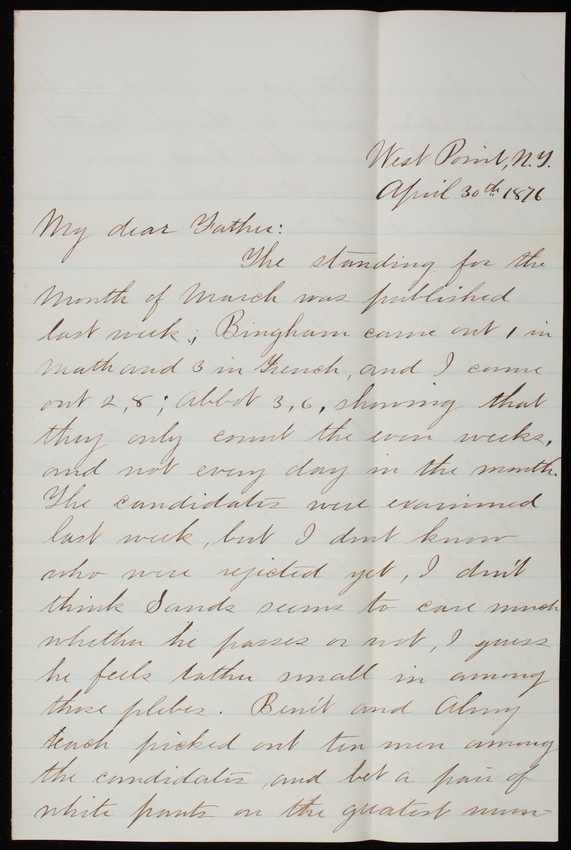 West Point, N.Y.
April 30th 1876
My dear Father:
The standing for the
month of March was published
last week; Bingham came out 1 in
Math and 3 in French, and I came
out 2, 8; Abbot 3, 6, showing that
they only count the even weeks,
and not every day in the month.
The candidates were examined
last week, but I dont know
who were rejected yet, I don't
think Sands seems to care much
whether he passes or not, I guess
he feels rather small in among
those plebes. Benét and Almy
each picked out ten men among
the candidates, and bet a pair of
white pants on the greatest num-